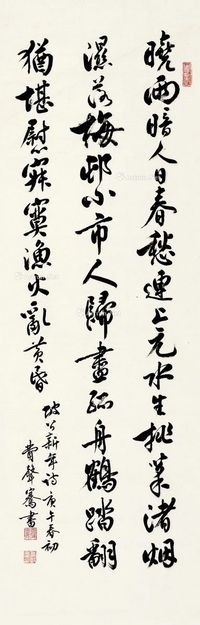 曉雨暗人日春愁連上元水生挑菜渚烟
濕落梅邨小市人歸盡孤舟鶴踏翻
猶堪慰寂寞漁火亂黃昏
坡公新年詩庚午春初
費聲騫書